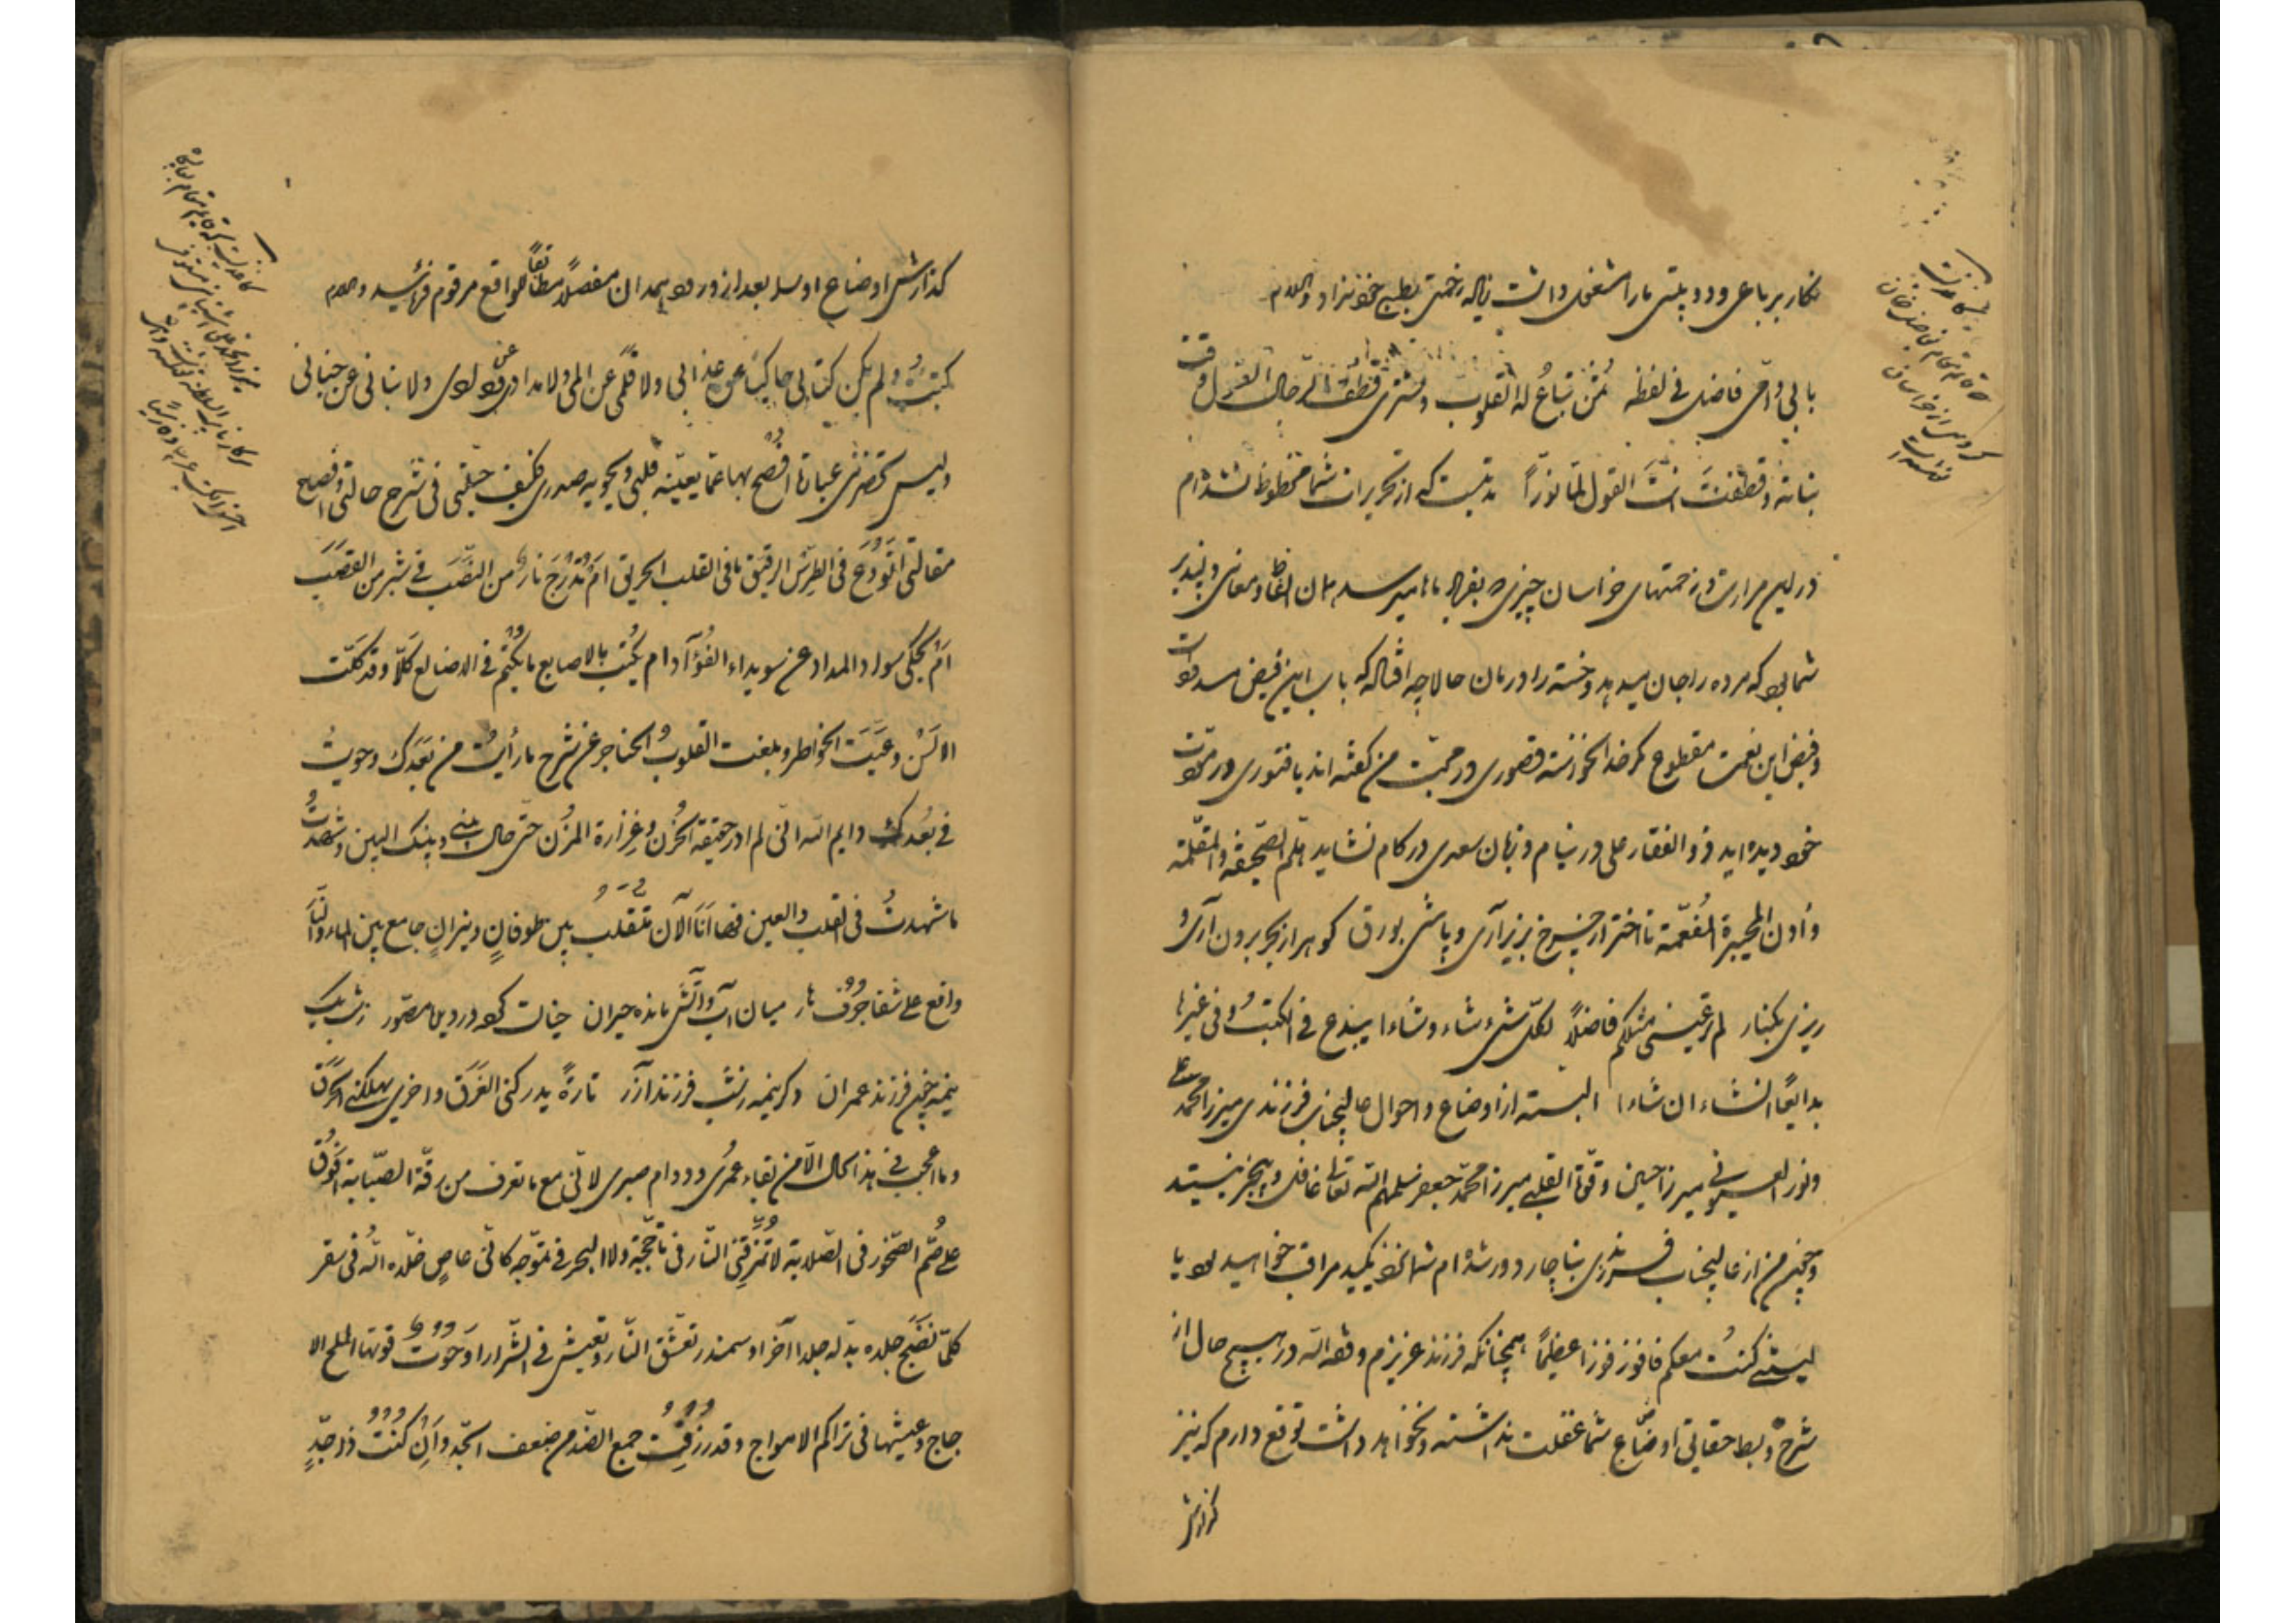 نکار برباعی و دو بیتی ما را مشغول داشت زیاده زحمتی بطبع خود نداد والسلام
بابی و امّی فاضل فی لفظه ثمن تباع له القلوب و تشتری قطف الرجال القول وقت
نباته و قطفت انت القول لمّا نوّرا مدتیست که از تحریرات شما محظوظ نشده‌ام
در این مرارت و زحمتهای خراسان چیزی که بفریاد ما میرسد همان الفاظ و معانی دلپذیر
شما بود که مرده را جان میدهد و خسته را درمان حالا چه افتاده که باب این فیض مسدود است
و فیض این نعمت مقطوع مکر خدا نخواسته قصوری در محبّت من گفته‌اند یا فتوری در مودّت
خود دیده‌اید ذوالفقار علی در نیام و زبان سعدی در کام نشاید هلمّ الصّحیفه و المقلمة
و أدن المحبرة المفعّمة تا اختر از چرخ بزیر آری و پاشی بورق کوهر از بحر برون آری و
ریزی بکنار لم ار عینی مثلکم فاضلاً لکلّ شیء شاء و شاءا یبدع فی الکتب و فی غیرها
بدایعاً ان شاء ان شاءا البته از اوضاع و احوال عالیجناب فرزندی میرزا محمد علی
و نور العیونی میرزا حسین و قوّة القلبی میرزا محمّد جعفر سلمهم الله تعالی غافل و بیخبر نیستید
و چون من از عالیجناب فرزندی بناچار دور شده‌ام شما نزدیکید مراقب خواهید بود یا
لیتنی کنت معکم فافوز فوزاً عظیماً همچنانکه فرزند عزیزم وفقه الله در هیچ حال از
شرح و بسط حقایق اوضاع شما غفلت نداشته و نخواهد داشت توقع دارم که نیز
گذارش
کاغذیست
قایم مقام بفاضل خان
کروسی از خراسان
نوشته است
گذارش اوضاع او را بعد از ورود همدان مفصلاً مطابقاً للواقع مرقوم فرمائید والسلام
کتبت و لم یکن کتابی حاکیاً عن عذابی و لا قلمی عن المی و لا مدادی عن ودادی و لا بنانی عن جنانی
و لیس تحضرنی عبارة افصح بها عمّا یعیّنه قلبی و یحویه صدری فکیف حیلتی فی شرح حالتی و افصح
مقالتی اتودع فی الطرس الرقیق ما فی القلب الحریق ام تدرج نار من النصب فی شبر من القصب
ام یحکی سواد المداد عن سویداء الفؤاد ام یکتب بالاصابع ما یکتم فی الاضالع کلّا و قد کلّت
الالسن و عیّت الخواطر و بلغت القلوب الحناجر عن شرح ما رأیت من بعدک و حویت
فی بعدک و ایم الله انّی لم ادر حقیقة الحزن و غزارة المزن حتّی حال بینی و بینک البین و شهدت
ما شهدت فی القلب و العین فها انا الآن تتقلب بین طوفانٍ و نیرانٍ جامع بین الماء و النار
واقع علی شفا جرف هار میان آب و آتش مانده حیران خیالت کرد در دریا مصوّر ز شب یک
نیمه چون فرزند عمران دگر نیمه ز شب فرزند آزر تارةً یدرکنی الغرق و اخری یهلکنی الحرق
و ما اعجب فی هذا الحال الّا من بقاء عمری و دوام صبری لانّی مع ما تعرف من رقّة الصّبابة افوق
علی صمّ الصّخور فی الصّلابة لا تمزّقنی النّار فی تأجّجه و لا البحر فی تموّجه کانّی عاصٍ خلّده الله فی سقر
کلّما نضج جلده بدّله جلداً آخر او سمندر تعشّق النّار و تعیش فی الشّرار او حوت قوتها الملح الا
جاج و عیشها فی تراکم الامواج و قد رزقت جمع الضّد من ضعف الجدّ و ان کنت ذو جدٍّ